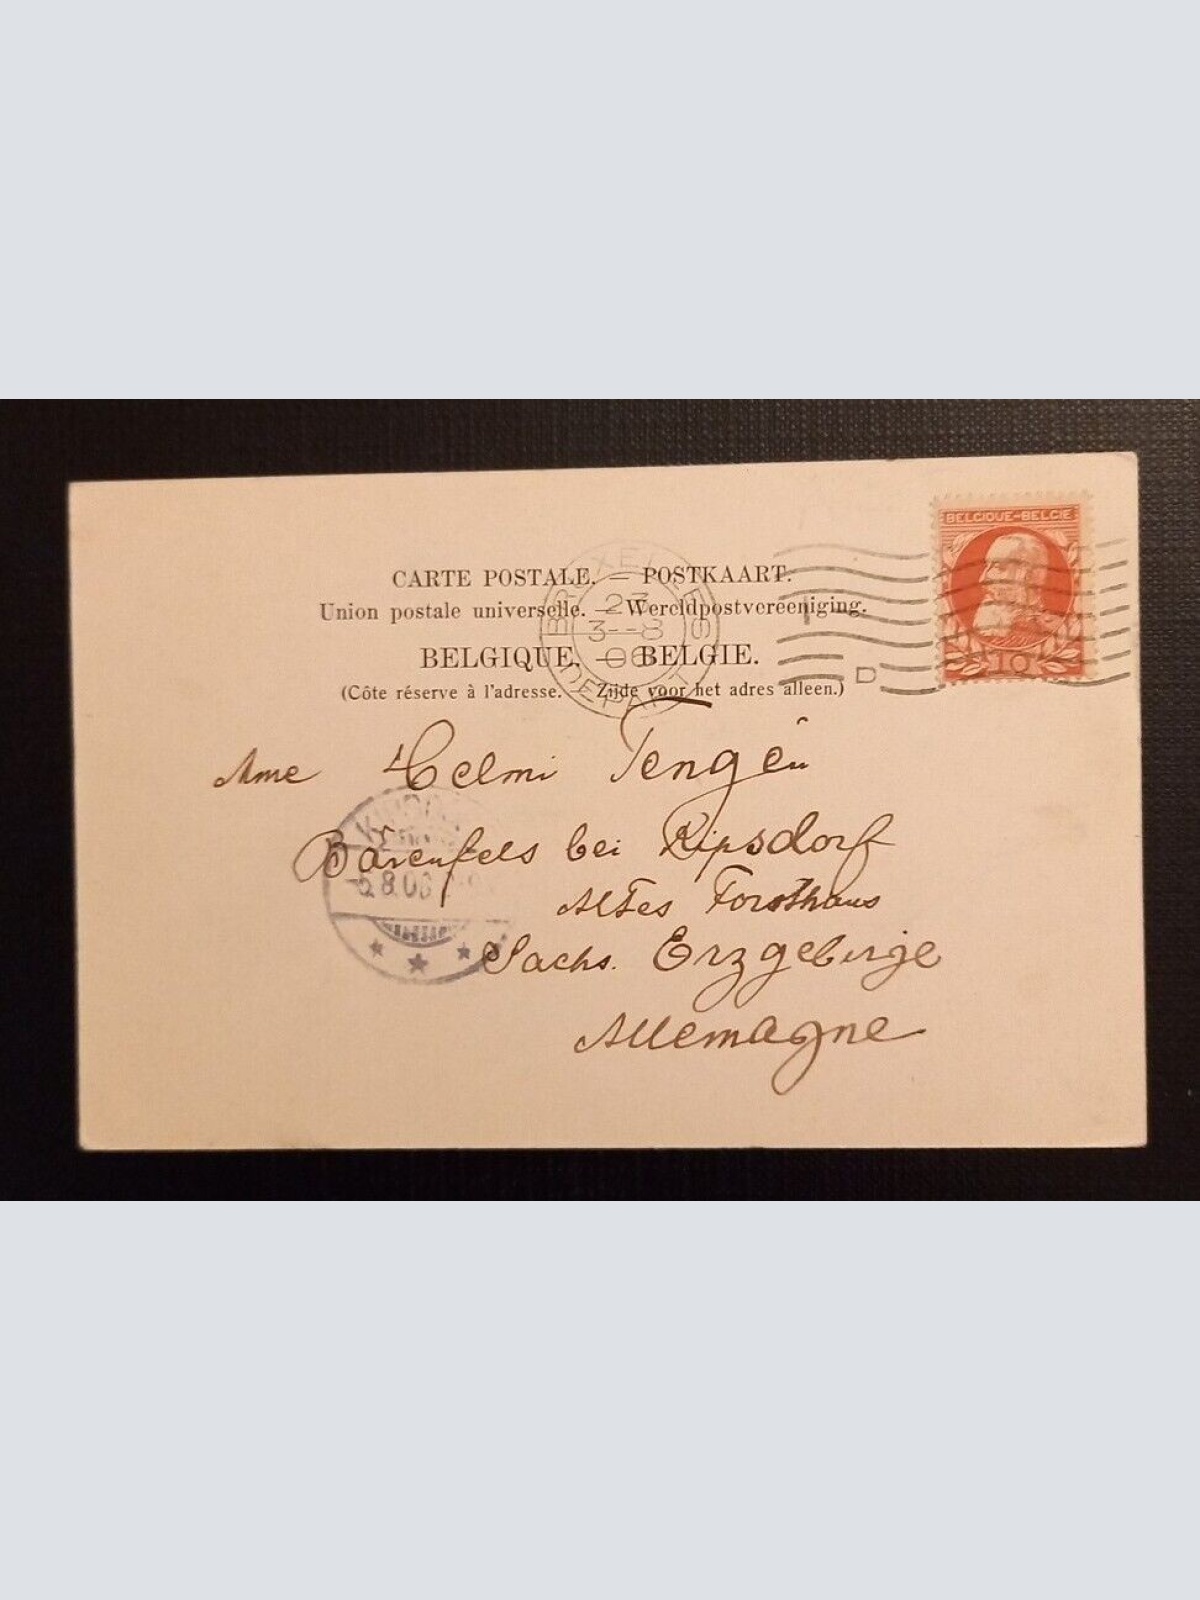 BELGIQUE-BELGIE
10
CARTE POSTALE. — POSTKAART.
Union postale universelle. — Wereldpostvereeniging.
BELGIQUE. — BELGIE.
(Côte réserve à l'adresse. Zijde voor het adres alleen.)
BRUXELLES
23
3--8
06
DEPART
D
Mme Helmi Tengén
Bärenfels bei Kipsdorf
Altes Forsthaus
Sächs. Erzgebirge
Allemagne
8.06